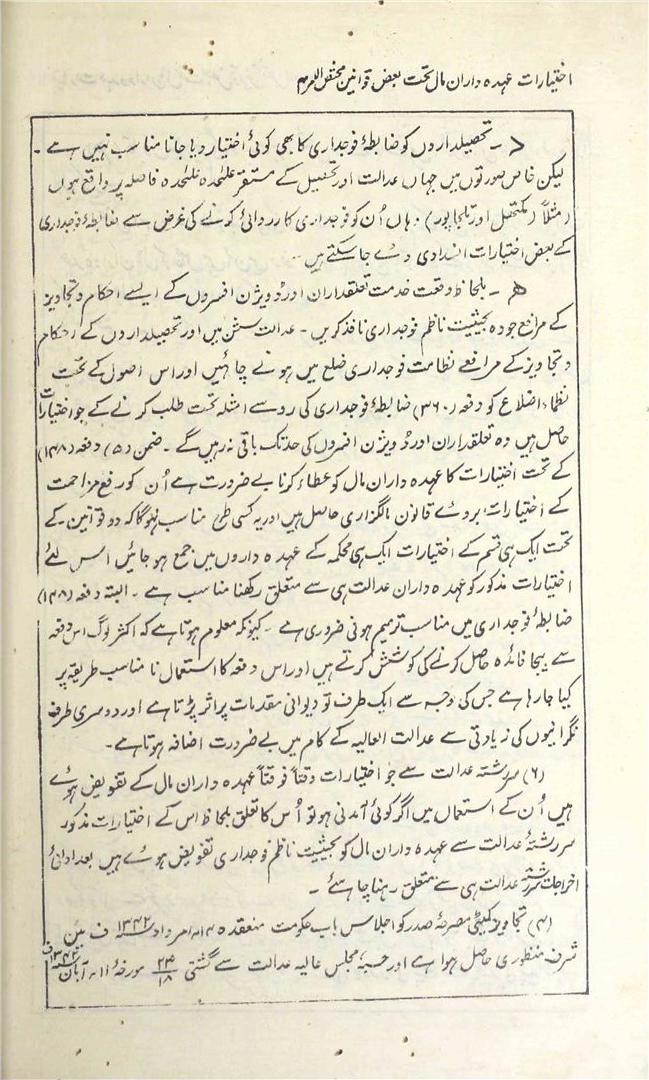 اختیارات عہدہ داران مال تحت بعض قوانین مختص الامر
۔ تحصیلداروں کو ضابطۂ فوجداری کا بھی کوئی اختیار دیا جانا مناسب نہیں ہے ۔
لیکن خاص صورتوں میں جہاں عدالت اور تحصیل کے مستقر علٰحدہ علٰحدہ فاصلہ پر واقع ہوں
(مثلاً اور تلجاپور) وہاں اُن کو فوجداری کارروائی کرنے کی غرض سے ضابطۂ فوجداری
کے بعض اختیارات انسدادی دئے جا سکتے ہیں ۔
۔ بلحاظ وقعت خدمت تعلقداران اور ڈویژن افسروں کے ایسے احکام و تجاویز
کے مرافع جو وہ بحیثیت ناظم فوجداری نافذ کریں ۔ عدالت سشن میں اور تحصیلداروں کے احکام
و تجاویز کے مرافعے نظامت فوجداری ضلع میں ہونے چاہئیں اور اس اصول کے تحت
نظماء اضلاع کو دفعہ (۳۶۰) ضابطۂ فوجداری کی رو سے امثلہ تحت طلب کرنے کے جو اختیارات
حاصل ہیں وہ تعلقداران اور ڈویژن افسروں کی حد تک باقی نہ رہیں گے ۔ ضمن (۵) دفعہ (۱۴۸)
کے تحت اختیارات کا عہدہ داران مال کو عطاء کرنا بے ضرورت ہے اُن کو رفع مزاحمت
کے اختیارات بروئے قانون مالگزاری حاصل ہیں اور یہ کسی طرح مناسب نہوگا کہ دو قوانین کے
تحت ایک ہی قسم کے اختیارات ایک ہی محکمہ کے عہدہ داروں میں جمع ہو جائیں اس لئے
اختیارات مذکور کو عہدہ داران عدالت ہی سے متعلق رکھنا مناسب ہے ۔ البتہ دفعہ (۱۴۸)
ضابطۂ فوجداری میں مناسب ترمیم ہونی ضروری ہے ۔ کیونکہ معلوم ہوتا ہے کہ اکثر لوگ اس دفعہ
سے بیجا فائدہ حاصل کرنے کی کوشش کرتے ہیں اور اس دفعہ کا استعمال نا مناسب طریقہ پر
کیا جا رہا ہے جس کی وجہ سے ایک طرف تو دیوانی مقدمات پر اثر پڑتا ہے اور دوسری طرف
نگرانیوں کی زیادتی سے عدالت العالیہ کے کام میں بے ضرورت اضافہ ہوتا ہے ۔
(۶) سررشتہ عدالت سے جو اختیارات وقتاً فوقتاً عہدہ داران مال کے تفویض ہوئے
ہیں اُن کے استعمال میں اگر کوئی آمدنی ہو تو اُس کا تعلق بلحاظ اس کے اختیارات مذکور
سررشتۂ عدالت سے عہدہ داران مال کو بحیثیت ناظم فوجداری تفویض ہوئے ہیں بعد ادائی
اخراجات سررشتہ عدالت ہی سے متعلق رہنا چاہئے ۔
(۴) تجاویز کمیٹی مصرحۂ صدر کو اجلاس باب حکومت منعقدہ ۱۴؍ امرداد ۱۳۴۲ ف میں
شرف منظوری حاصل ہوا ہے اور حسبہ مجلس عالیہ عدالت سے گشتی ۲۴/۱۸ مورخۂ ۱۱؍ آبان